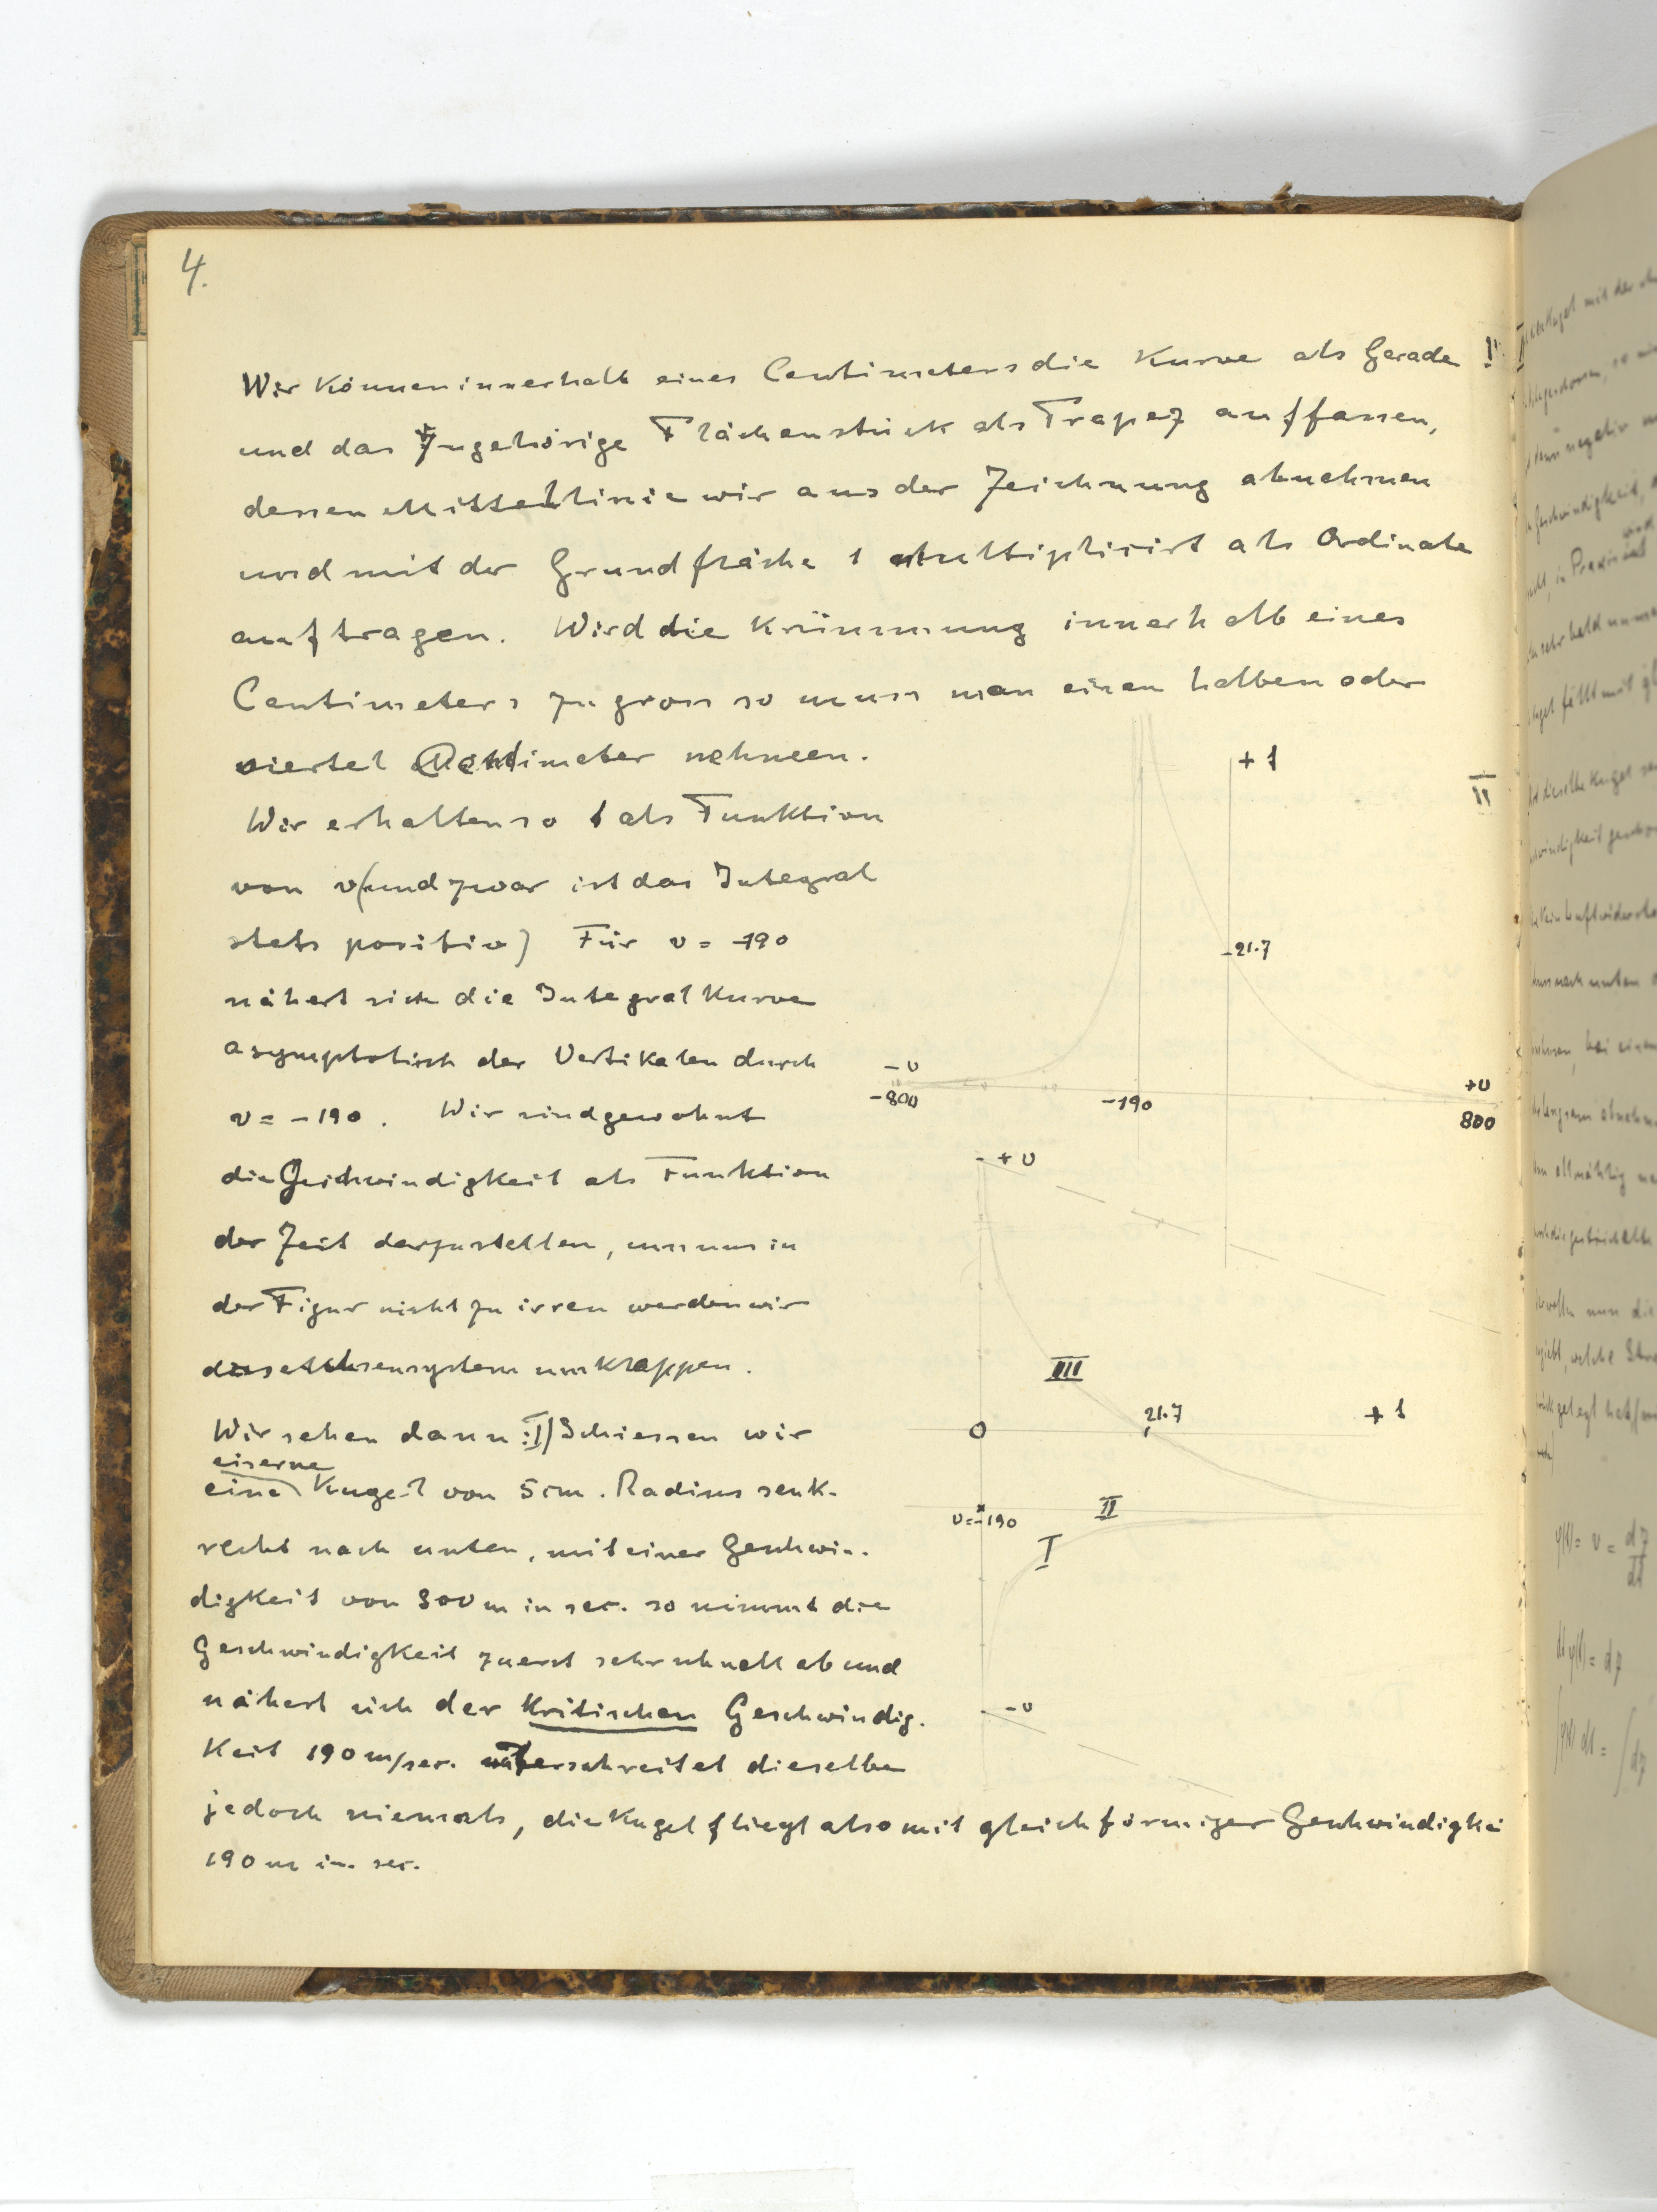 4.
Wir können innerhalb eines Centimeters die Kurve als Gerade !
und das zugehörige Flächenstück als Trapez auffassen,
dessen Mittellinie wir aus der Zeichnung abnehmen
und mit der Grundfläche 1 multiplicirt als Ordinate
auftragen. Wird die Krümmung innerhalb eines
Centimeters zu gross so muss man einen halben oder
viertel Centimeter nehmen.
Wir erhalten so t als Funktion
von v (und zwar ist das Integral
stets positiv) Für v = -190
nähert sich die Integralkurve
asymptotisch der Vertikalen durch
v = -190. Wir sind gewohnt
die Geschwindigkeit als Funktion
der Zeit darzustellen, um uns in
der Figur nicht zu irren werden wir
das Achsensystem umklappen.
Wir sehen dann: I) Schiessen wir
eiserne
eine Kugel von 5 cm. Radius senk-
recht nach unten, mit einer Geschwin-
digkeit von 800 m in sec. so nimmt die
Geschwindigkeit zuerst sehr schnell ab und
nähert sich der kritischen Geschwindig-
keit 190 m/sec. unterschreitet dieselbe
jedoch niemals, die Kugel fliegt also mit gleichförmiger Geschwindigkei
190 m in sec.
+ t
II
21.7
-v
-800
-190
+v
800
+ v
III
0
21.7
+ t
v=-190
II
I
-v